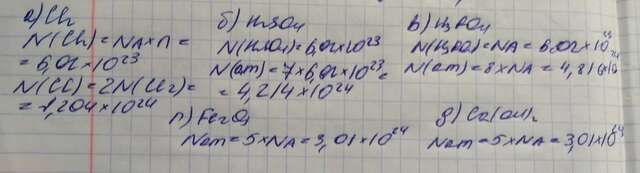 а) Cl₂
N(Cl₂) = NA × n =
= 6,02 × 10²³
N(Cl) = 2N(Cl₂) =
= 1,204 × 10²⁴
б) H₂SO₄
N(H₂SO₄) = 6,02 × 10²³
N(am) = 7 × 6,02 × 10²³ =
= 4,214 × 10²⁴
в) H₃PO₄
N(H₃PO₄) = NA = 6,02 × 10²³
N(am) = 8 × NA = 4,816
г) Fe₂O₃
Nam = 5 × NA = 3,01 × 10²⁴
д) Ca(OH)₂
Nam = 5 × NA = 3,01 × 10²⁴